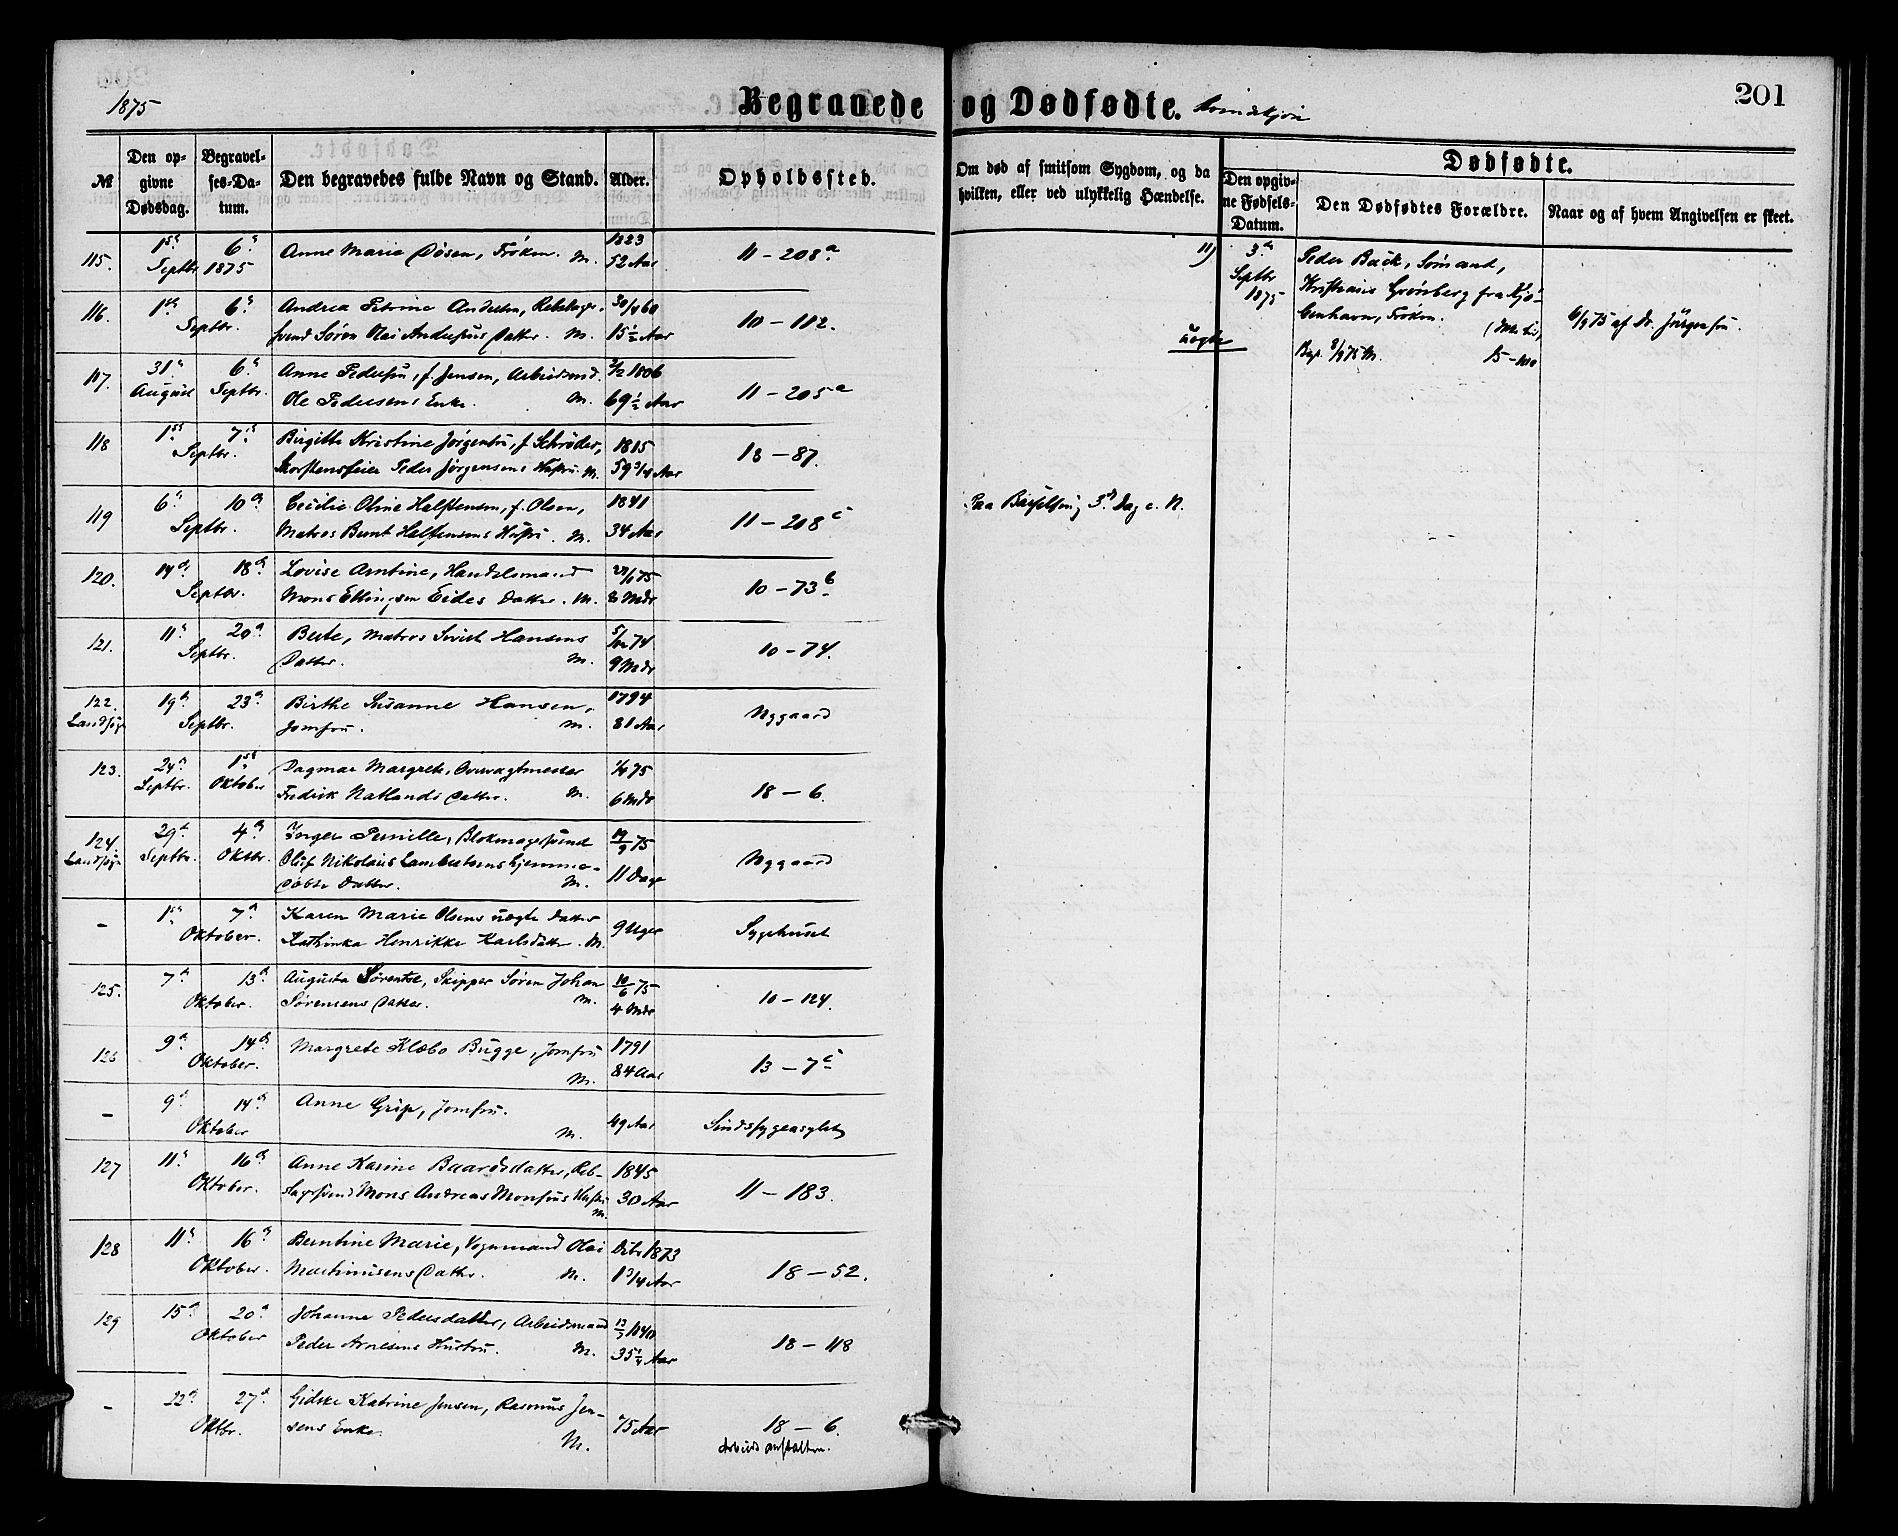 1875
Begravede og Dødfødte. Kvindekjøn
201
№
Den op-
givne
Dødsdag.
Begravel-
ses-Da-
tum.
Den begravedes fulde Navn og Stand.
Alder.
Opholdssted.
Om død af smitsom Sygdom, og da
hvilken, eller ved ulykkelig Hændelse.
Dødfødte.
Den opgiv-
ne Fødsels-
Datum.
Den Dødfødtes Forældre.
Naar og af hvem Angivelsen er skeet.
115. 1ste Septbr 6te 1875 Anne Marie Døsen, Frøken. M. 1823 52 Aar 11 – 208a
11) 3die Septbr 1875 Peder Back, Sømand,
Kristiane Grönberg fra Kjö-
benhavn, Frøken.
uægte
6/9 75 af Dr. Jörgensen.
116. 1ste 6te Septbr. Andrea Petrine Andersen, Rebslager-
svend Søren Olai Andersens Datter. M. 15½ Aar 10 – 112.
117. 31te August 6te Septbr. Anne Pedersen, f. Jensen, Arbeidsmd.
Ole Pedersens Enke. M. 2/2 1806 69½ Aar 11 – 205a
118 1ste 7de Septbr. Birgitte Kristine Jørgensen, f. Schrøder,
Skorstensfeier Peder Jørgensens Hustru. M. 1815 59 3/4 Aar 18 – 87.
119 6te 10de Septbr. Cecilie Oline Halstensen, f. Olsen,
Matros Bernt Halstensens Hustru. M. 1841 34 Aar 11 – 208c
Paa Barselseng 3die Dag e. N.
120. 14de 18de Septbr. Lovise Arntine, Handelsmand
Mons Ellingsen Eides Datter. M. 8 Mdr 10 – 73b
121. 11te 20de Septbr. Berte, Matros Sivert Hansens
Datter. M. 5/12 74 9 Mdr 10 – 74.
122. Landsogn 19de 23de Septbr. Birthe Susanne Hansen,
Jomfru. M. 1794 81 Aar Nygaard
123. 24de Septbr. 1ste Oktober Dagmar Margrete, Overvagtmester
Fredrik Natlands Datter. M. 1/4 75 6 Mdr 18 – 6.
124. Landsogn 29de Septbr. 4de Oktbr. Inger Pernille, Blokmagersvend
Oluf Nikolaus Lambertsens hjemme-
døbte Datter. M. 19/9 75 11 Dage Nygaard
– 1ste 7de Oktober. Karen Marie Olsens uægte Datter
Kathinka Henrikke Karlsdatter. M. 9 Uger Sygehuset
125. 7de 13de Oktober. Augusta Sørentse, Skipper Søren Johan
Sörensens Datter. M. 10/6 75 4 Mdr 10 – 124.
126 9de 14de Oktober. Margrete Klæbo Bugge, Jomfru
M. 1791 84 Aar 13 – 7c
– 9de 14de Oktober Anne Grip, Jomfru.
M. 49 Aar Sindssygeasylet
127 11te 16de Oktober. Anne Karine Baardsdatter, Reb-
slagersvend Mons Andreas Monsens Hustru
M. 1845 30 Aar 11 – 183.
128 11te 16de Oktober. Berntine Marie, Vognmand Olai
Martinusens Datter. M. Dcbr 1873 1 3/4 Aar 18 – 52.
129 15de 20de Oktober Johanne Pedersdatter, Arbeidsmand
Peder Arnesens Hustru. M. 13/7 1840 35¼ Aar 18 – 118
– 22de 27de Oktbr. Gidske Katrine Jensen, Rasmus Jen-
sens Enke. M. 75 Aar 18 – 6.
Arbeidsanstalten.